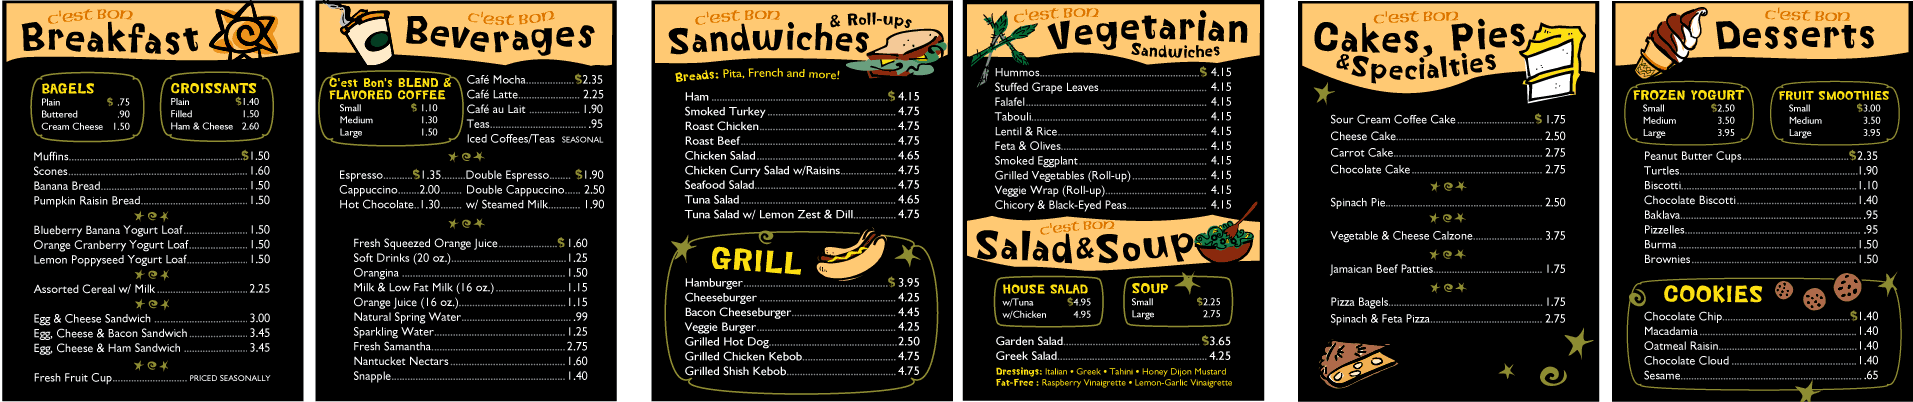 c'est Bon
Breakfast
BAGELS
Plain $ .75
Buttered .90
Cream Cheese 1.50
CROISSANTS
Plain $1.40
Filled 1.50
Ham & Cheese 2.60
Muffins $1.50
Scones 1.60
Banana Bread 1.50
Pumpkin Raisin Bread 1.50
Blueberry Banana Yogurt Loaf 1.50
Orange Cranberry Yogurt Loaf 1.50
Lemon Poppyseed Yogurt Loaf 1.50
Assorted Cereal w/ Milk 2.25
Egg & Cheese Sandwich 3.00
Egg, Cheese & Bacon Sandwich 3.45
Egg, Cheese & Ham Sandwich 3.45
Fresh Fruit Cup PRICED SEASONALLY
c'est Bon
Beverages
C'est Bon's BLEND &
FLAVORED COFFEE
Small $ 1.10
Medium 1.30
Large 1.50
Café Mocha $2.35
Café Latte 2.25
Café au Lait 1.90
Teas .95
Iced Coffees/Teas SEASONAL
Espresso $1.35 Double Espresso $1.90
Cappuccino 2.00 Double Cappuccino 2.50
Hot Chocolate 1.30 w/ Steamed Milk 1.90
Fresh Squeezed Orange Juice $ 1.60
Soft Drinks (20 oz.) 1.25
Orangina 1.50
Milk & Low Fat Milk (16 oz.) 1.15
Orange Juice (16 oz.) 1.15
Natural Spring Water .99
Sparkling Water 1.25
Fresh Samantha 2.75
Nantucket Nectars 1.60
Snapple 1.40
c'est Bon
Sandwiches & Roll-ups
Breads: Pita, French and more!
Ham $ 4.15
Smoked Turkey 4.75
Roast Chicken 4.75
Roast Beef 4.75
Chicken Salad 4.65
Chicken Curry Salad w/Raisins 4.75
Seafood Salad 4.75
Tuna Salad 4.65
Tuna Salad w/ Lemon Zest & Dill 4.75
GRILL
Hamburger $ 3.95
Cheeseburger 4.25
Bacon Cheeseburger 4.45
Veggie Burger 4.25
Grilled Hot Dog 2.50
Grilled Chicken Kebob 4.75
Grilled Shish Kebob 4.75
c'est Bon
Vegetarian
Sandwiches
Hummos $ 4.15
Stuffed Grape Leaves 4.15
Falafel 4.15
Tabouli 4.15
Lentil & Rice 4.15
Feta & Olives 4.15
Smoked Eggplant 4.15
Grilled Vegetables (Roll-up) 4.15
Veggie Wrap (Roll-up) 4.15
Chicory & Black-Eyed Peas 4.15
c'est Bon
Salad & Soup
HOUSE SALAD
w/Tuna $4.95
w/Chicken 4.95
SOUP
Small $2.25
Large 2.75
Garden Salad $3.65
Greek Salad 4.25
Dressings: Italian • Greek • Tahini • Honey Dijon Mustard
Fat-Free : Raspberry Vinaigrette • Lemon-Garlic Vinaigrette
c'est Bon
Cakes, Pies
& Specialties
Sour Cream Coffee Cake $ 1.75
Cheese Cake 2.50
Carrot Cake 2.75
Chocolate Cake 2.75
Spinach Pie 2.50
Vegetable & Cheese Calzone 3.75
Jamaican Beef Patties 1.75
Pizza Bagels 1.75
Spinach & Feta Pizza 2.75
c'est Bon
Desserts
FROZEN YOGURT
Small $2.50
Medium 3.50
Large 3.95
FRUIT SMOOTHIES
Small $3.00
Medium 3.50
Large 3.95
Peanut Butter Cups $2.35
Turtles 1.90
Biscotti 1.10
Chocolate Biscotti 1.40
Baklava .95
Pizzelles .95
Burma 1.50
Brownies 1.50
COOKIES
Chocolate Chip $1.40
Macadamia 1.40
Oatmeal Raisin 1.40
Chocolate Cloud 1.40
Sesame .65